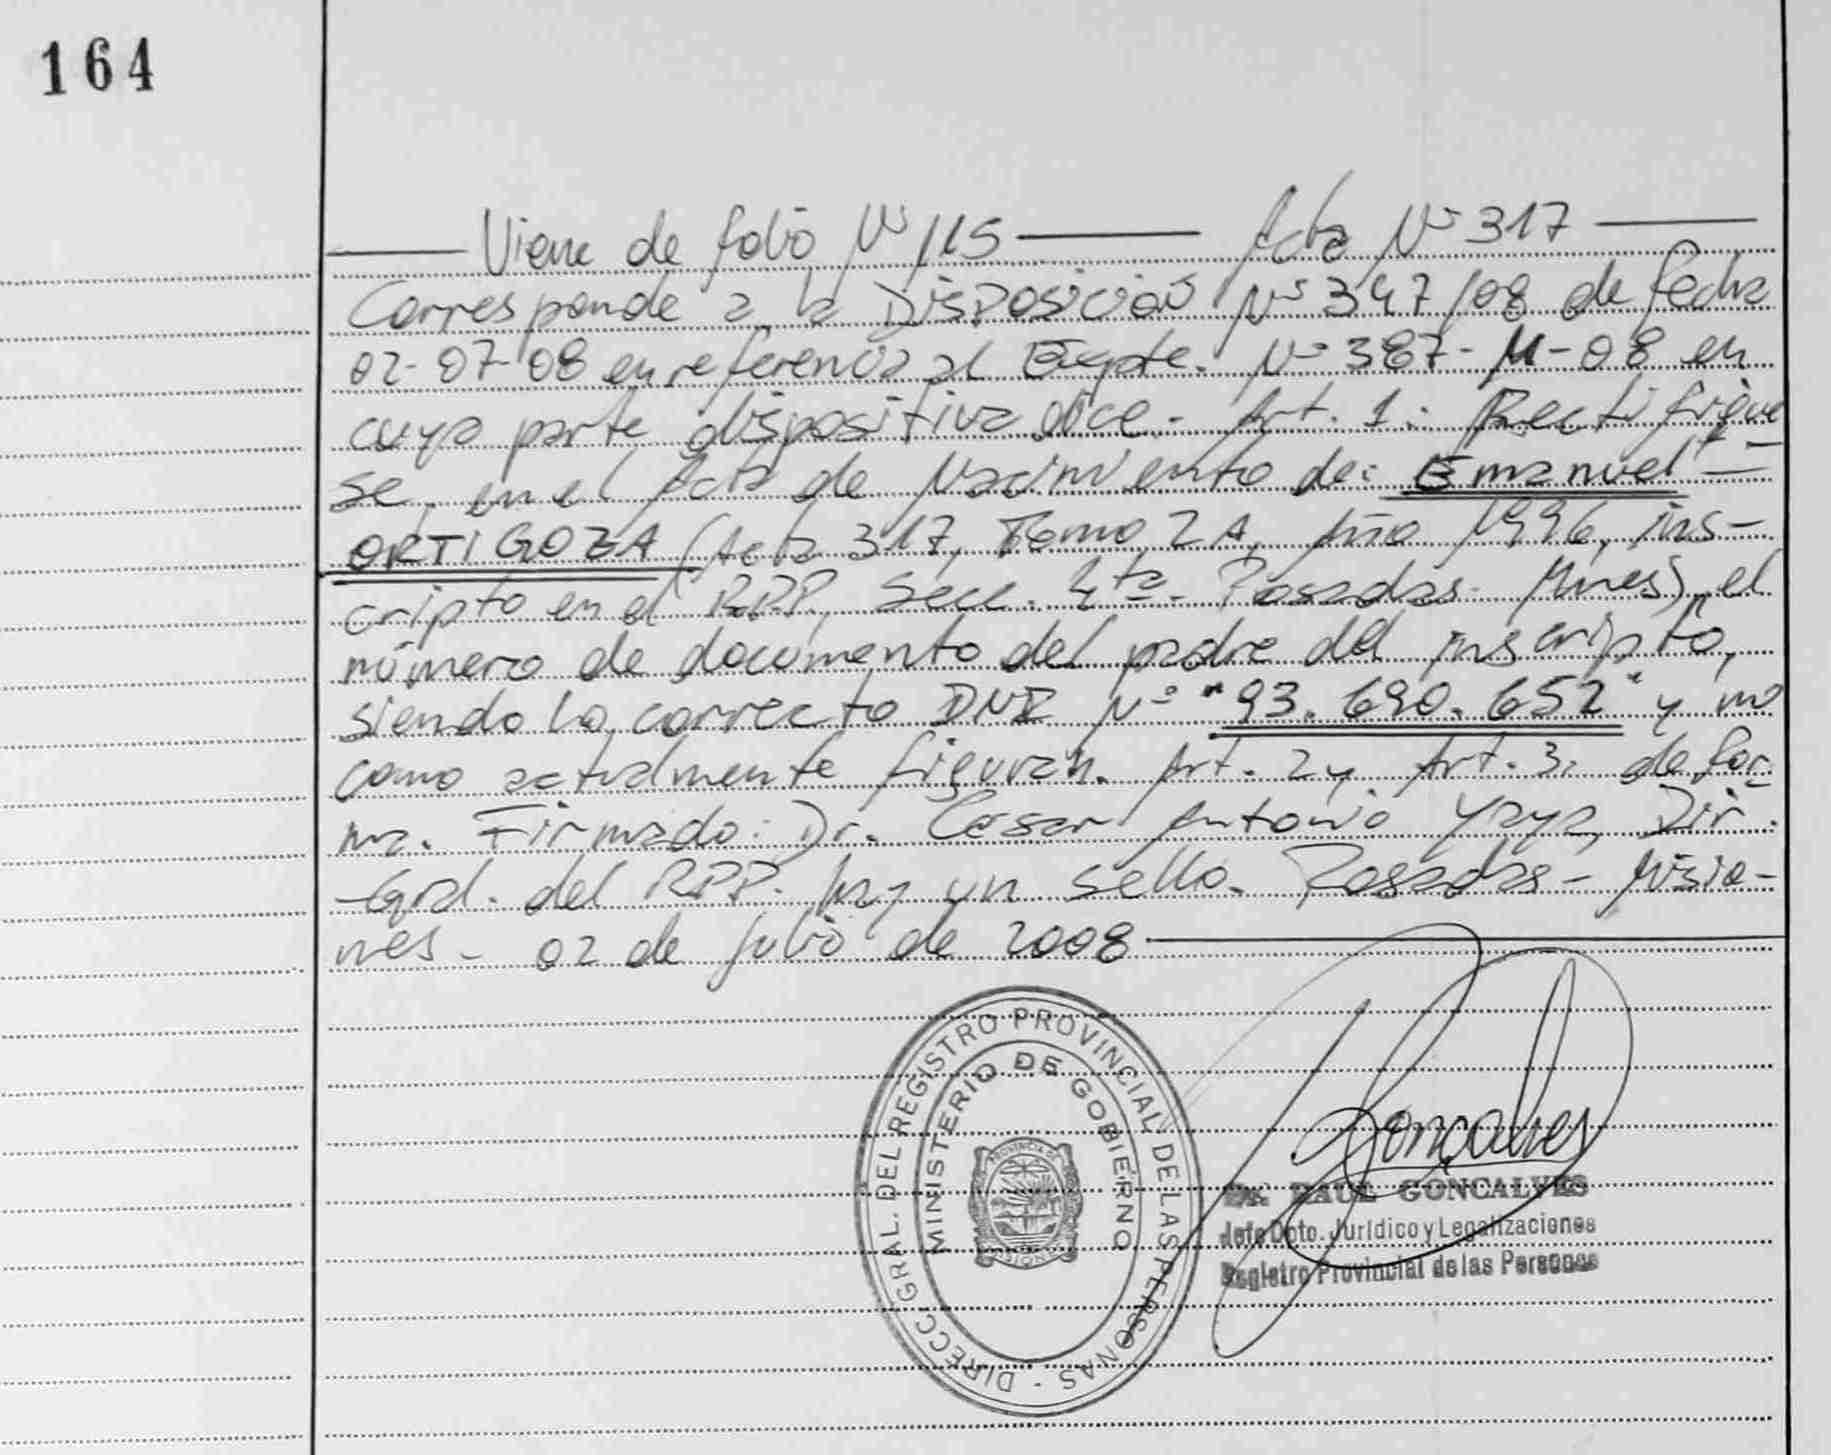 164
Viene de folio Nº 115 — Acta Nº 317 —
Corresponde a la DISPOSICIÓN Nº 347/08 de fecha
02-07-08 en referencia al Expte. Nº 387-M-08 en
cuya parte dispositiva dice - Art. 1: Rectifíque
se, en el Acta de Nacimiento de: Emanuel
ORTIGOZA (Acta 317, Tomo 2A, Año 1996, ins-
cripto en el RPP, Secc. 4ta. Posadas. Mnes), el
número de documento del padre del inscripto,
siendo lo correcto DNI Nº "93.690.652" y no
como actualmente figuran. Art. 2 y Art. 3: de for-
ma. Firmado: Dr. Cesar Antonio Yaya, Dir.
-Gral. del RPP. hay un sello. Posadas - Misio-
nes - 02 de julio de 2008
DIRECC. GRAL. DEL REGISTRO PROVINCIAL DE LAS PERSONAS -
MINISTERIO DE GOBIERNO
PROVINCIA DE
MISIONES
Goncalves
Dr. RAUL GONCALVES
Jefe Dpto. Jurídico y Legalizaciones
Registro Provincial de las Personas